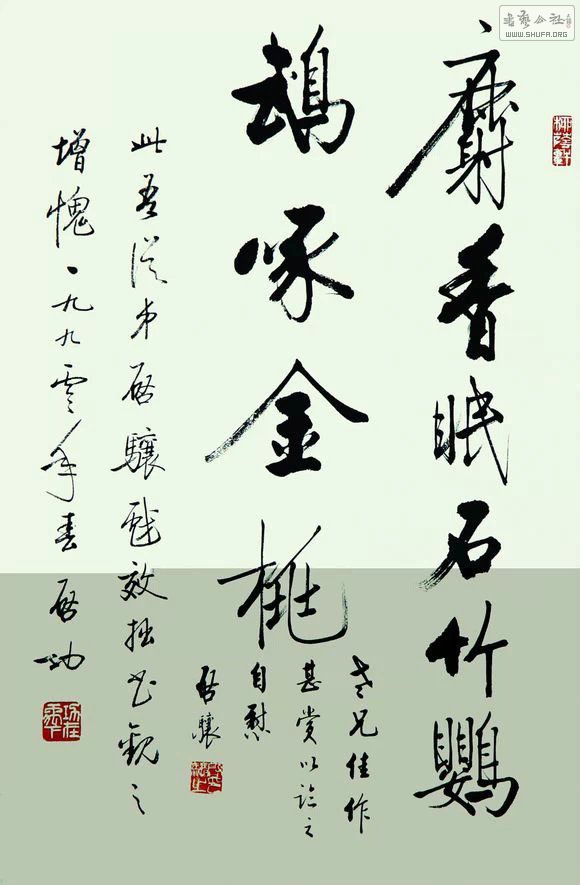 书艺公社
WWW.SHUFA.ORG
麝香眠石竹鸚
鵡啄金桃
兄佳作
甚賞以之
自慰
啟驤
此吾從弟啟驤戲效拙書觀之
增愧一九九零年春啟功